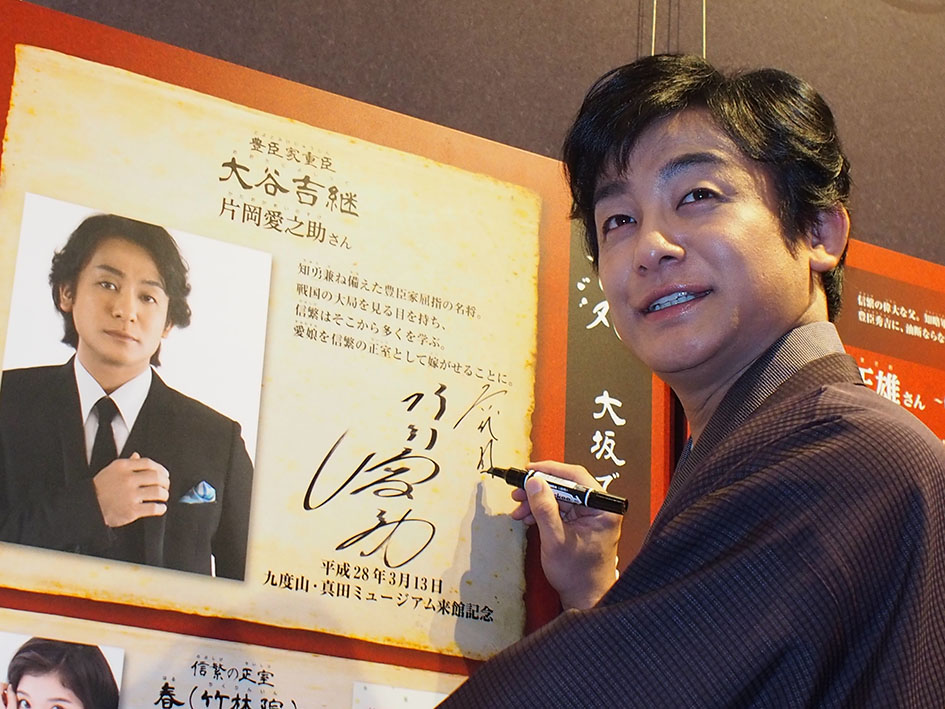 豊臣家重臣
大谷吉継
片岡愛之助さん
知勇兼ね備えた豊臣家屈指の名将。
戦国の大局を見る目を持ち、
信繁はそこから多くを学ぶ。
愛娘を信繁の正室として嫁がせることに。
平成28年3月13日
九度山・真田ミュージアム来館記念
信繁の正室
春(竹林院)
大坂で
信繁の偉大な父、知略
豊臣秀吉に、油断なら
正雄さん